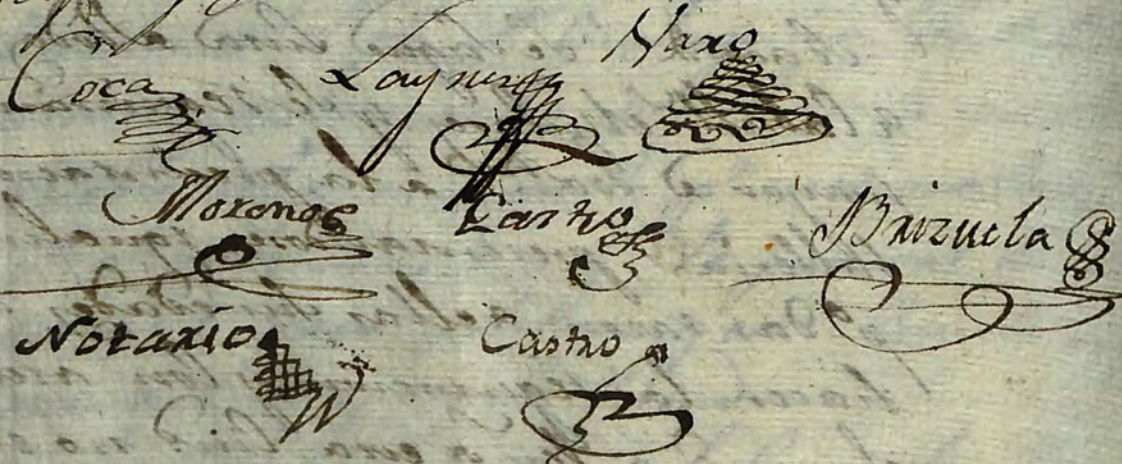 Coca Laynez Naxo
Moreno Castro Brizuela
Notario Castro